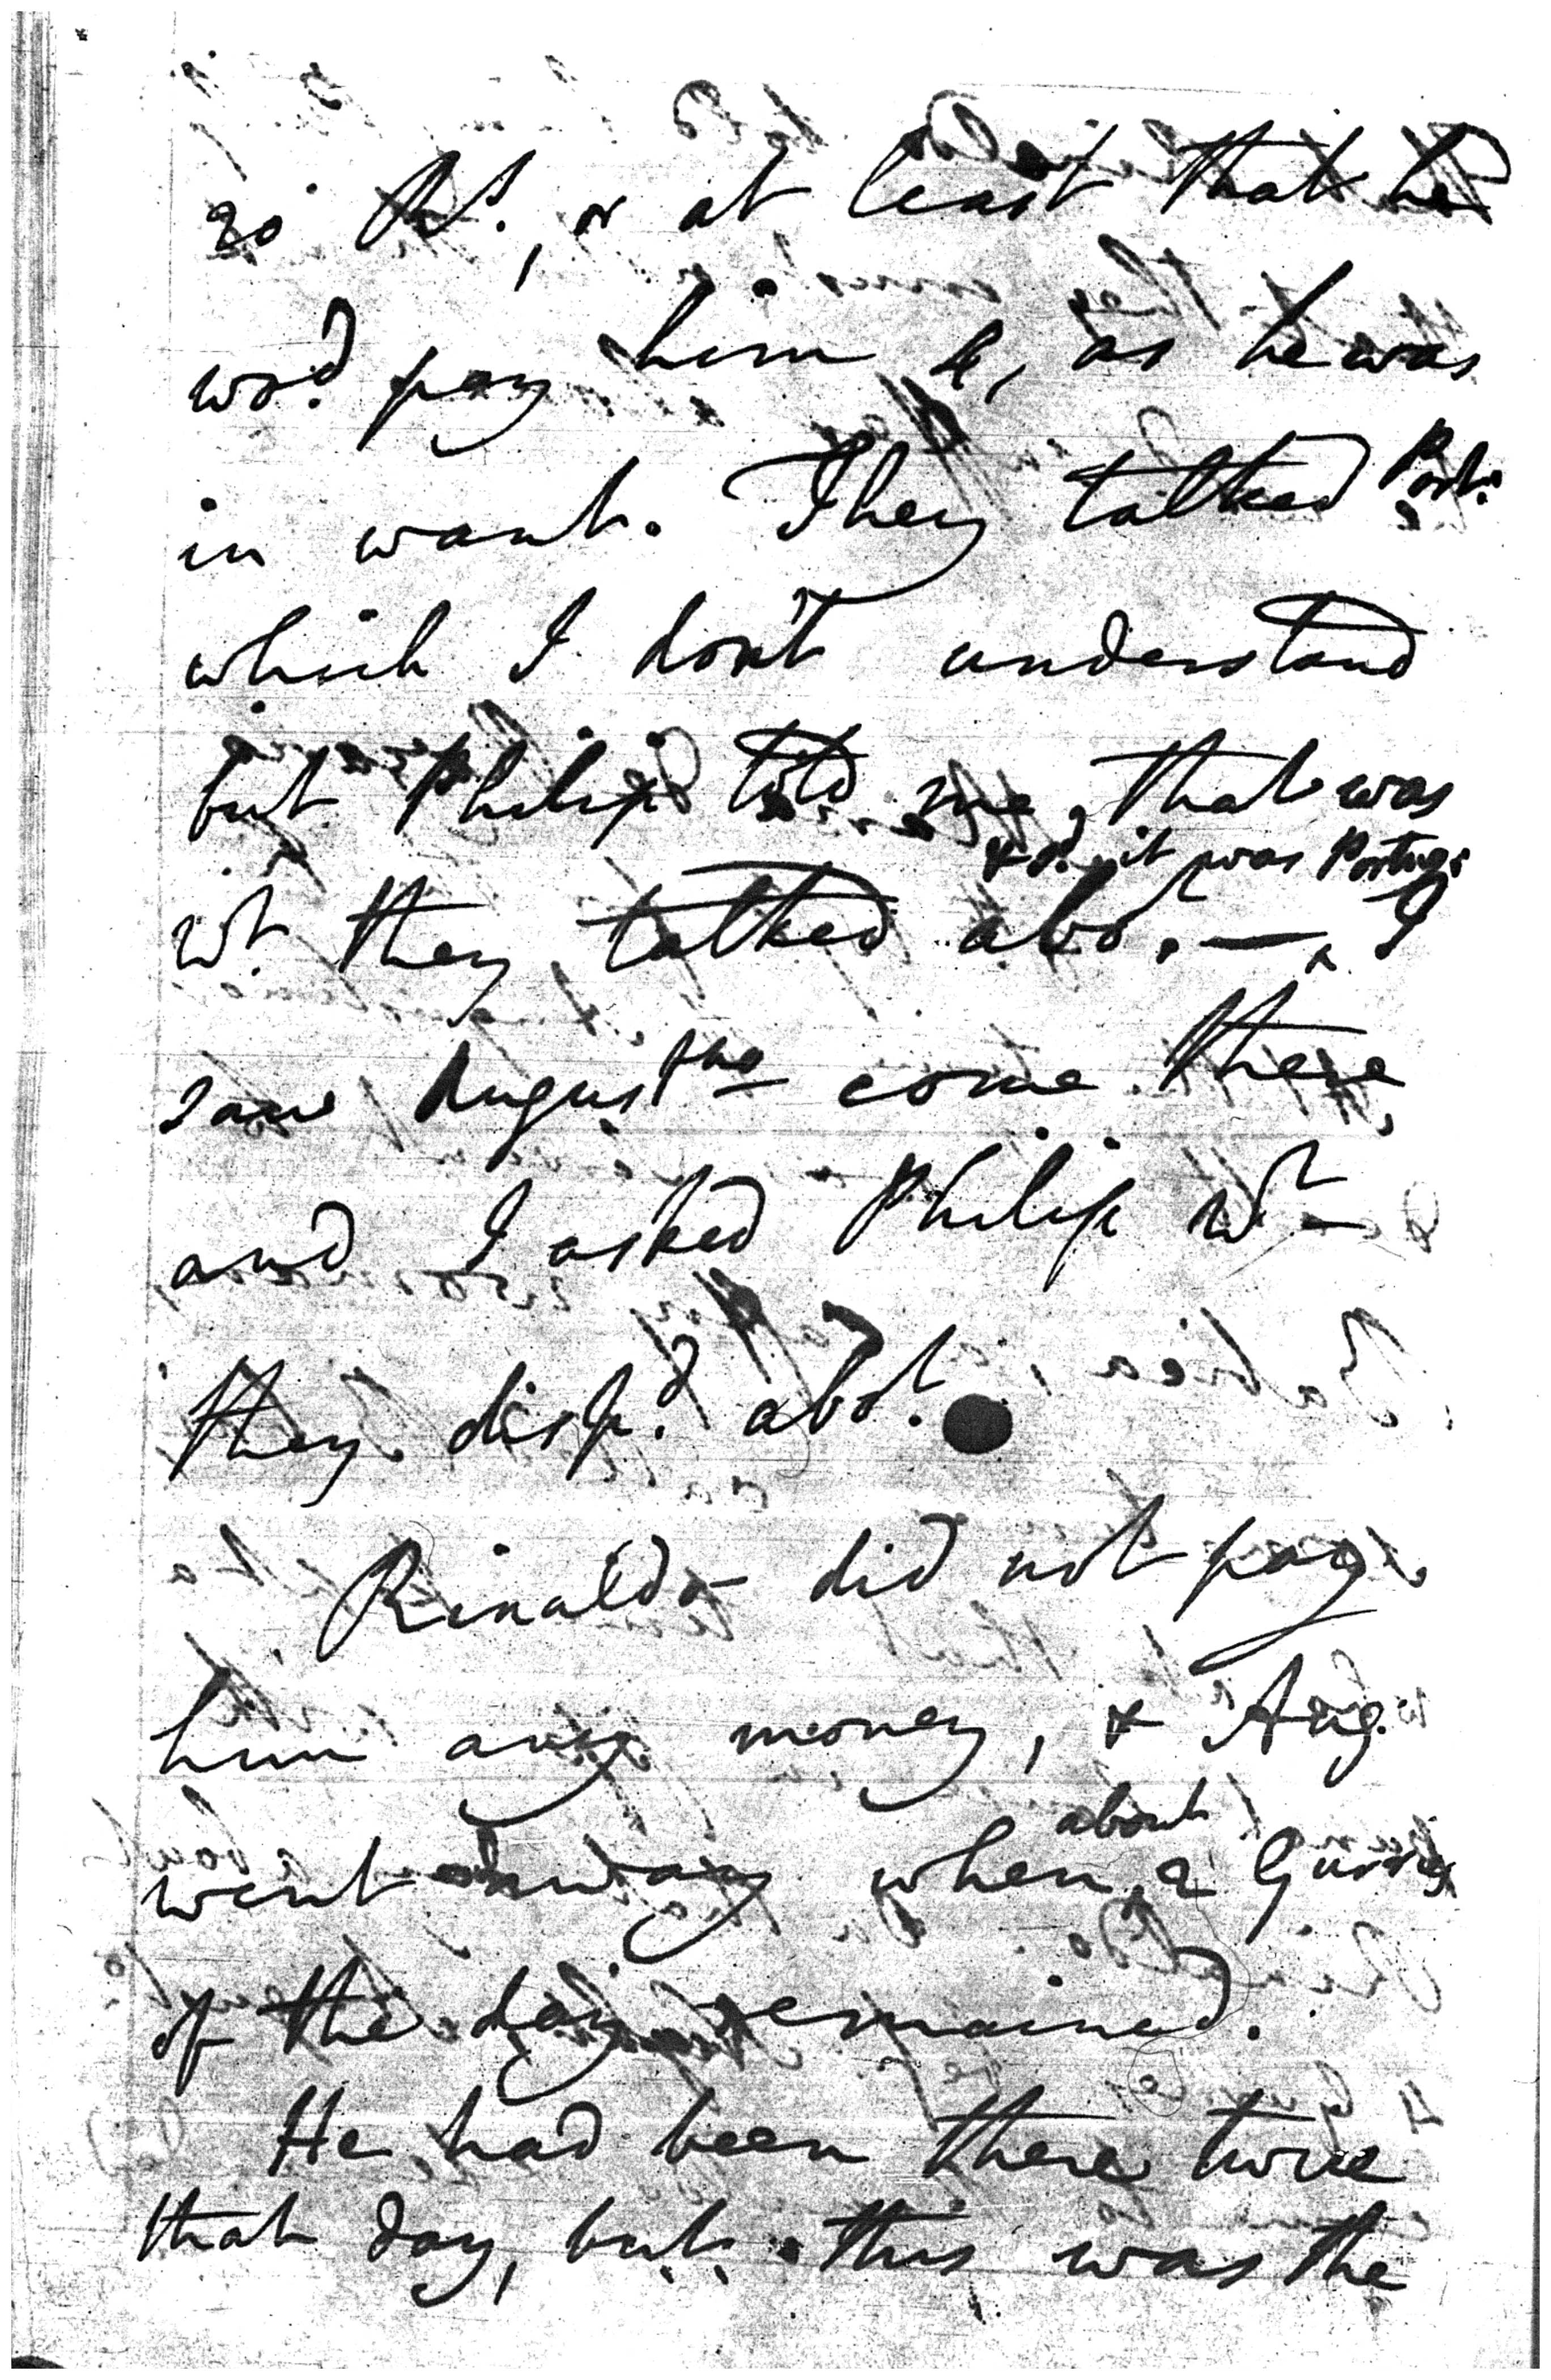 20 Rs., or at least that he
wod. pay him 4, as he was
in want. They talked Port.
which I don't understand
but Philip told me, that was
& sd. it was Portug.
wt. they talked abot. — ^ I
saw Augustino come there
and I asked Philip wt
they disp.d abot.
Rinaldo did not pay
him any money, & Aug.
about
went away when ^ 2 Gurries
of the day remained.
He had been there twice
that day, but this was the